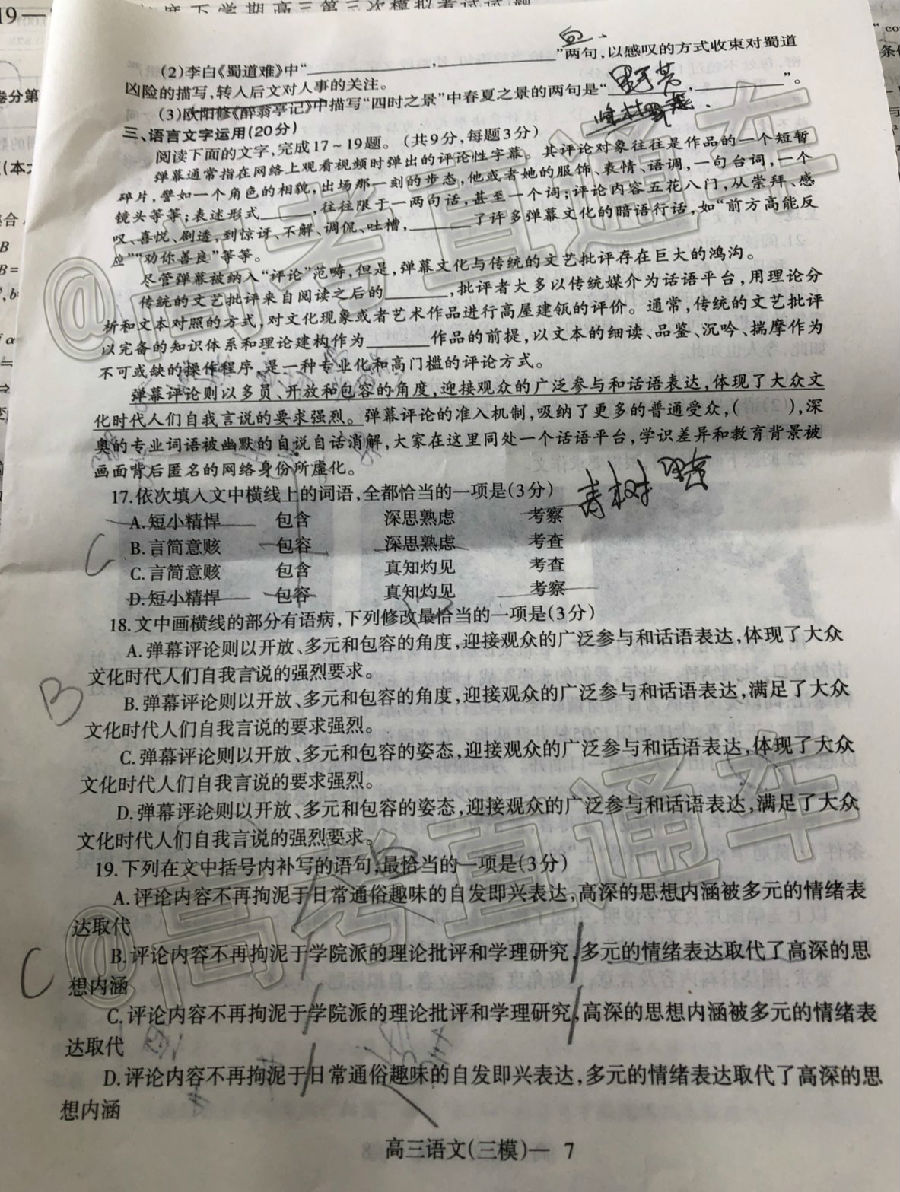 度下学期高三第三次模拟考试试题
(2)李白《蜀道难》中“________________”两句,以感叹的方式收束对蜀道
凶险的描写,转人后文对人事的关注。
(3)欧阳修《醉翁亭记》中描写“四时之景”中春夏之景的两句是“________,________”。
三、语言文字运用(20分)
阅读下面的文字,完成17~19题。(共9分,每题3分)
弹幕通常指在网络上观看视频时弹出的评论性字幕。其评论对象往往是作品的一个短暂
碎片,譬如一个角色的相貌,出场那一刻的步态,他或者她的服饰、表情、语调,一句台词,一个
镜头等等;表述形式______,往往限于一两句话,甚至一个词;评论内容五花八门,从崇拜、感
叹、喜悦、剧透,到惊讶、不解、调侃、吐槽,______了许多弹幕文化的暗语行话,如“前方高能反
应”“劝你善良”等等。
尽管弹幕被纳入“评论”范畴,但是,弹幕文化与传统的文艺批评存在巨大的鸿沟。
传统的文艺批评来自阅读之后的______,批评者大多以传统媒介为话语平台,用理论分
析和文本对照的方式,对文化现象或者艺术作品进行高屋建瓴的评价。通常,传统的文艺批评
以完备的知识体系和理论建构作为______作品的前提,以文本的细读、品鉴、沉吟、揣摩作为
不可或缺的操作程序,是一种专业化和高门槛的评论方式。
弹幕评论则以多员、开放和包容的角度,迎接观众的广泛参与和话语表达,体现了大众文
化时代人们自我言说的要求强烈。弹幕评论的准入机制,吸纳了更多的普通受众,(　　),深
奥的专业词语被幽默的自说自话消解,大家在这里同处一个话语平台,学识差异和教育背景被
画面背后匿名的网络身份所虚化。
17.依次填入文中横线上的词语,全都恰当的一项是(3分)
A.短小精悍 包含 深思熟虑 考察
B.言简意赅 包容 深思熟虑 考查
C.言简意赅 包含 真知灼见 考查
D.短小精悍 包容 真知灼见 考察
C
18.文中画横线的部分有语病,下列修改最恰当的一项是(3分)
A.弹幕评论则以开放、多元和包容的角度,迎接观众的广泛参与和话语表达,体现了大众
文化时代人们自我言说的强烈要求。
B
B.弹幕评论则以开放、多元和包容的角度,迎接观众的广泛参与和话语表达,满足了大众
文化时代人们自我言说的要求强烈。
C.弹幕评论则以开放、多元和包容的姿态,迎接观众的广泛参与和话语表达,体现了大众
文化时代人们自我言说的要求强烈。
D.弹幕评论则以开放、多元和包容的姿态,迎接观众的广泛参与和话语表达,满足了大众
文化时代人们自我言说的强烈要求。
19.下列在文中括号内补写的语句,最恰当的一项是(3分)
A.评论内容不再拘泥于日常通俗趣味的自发即兴表达,高深的思想内涵被多元的情绪表
达取代
C
B.评论内容不再拘泥于学院派的理论批评和学理研究,多元的情绪表达取代了高深的思
想内涵
C.评论内容不再拘泥于学院派的理论批评和学理研究,高深的思想内涵被多元的情绪表
达取代
D.评论内容不再拘泥于日常通俗趣味的自发即兴表达,多元的情绪表达取代了高深的思
想内涵
高三语文(三模)— 7
@高考直通车
@高考直通车